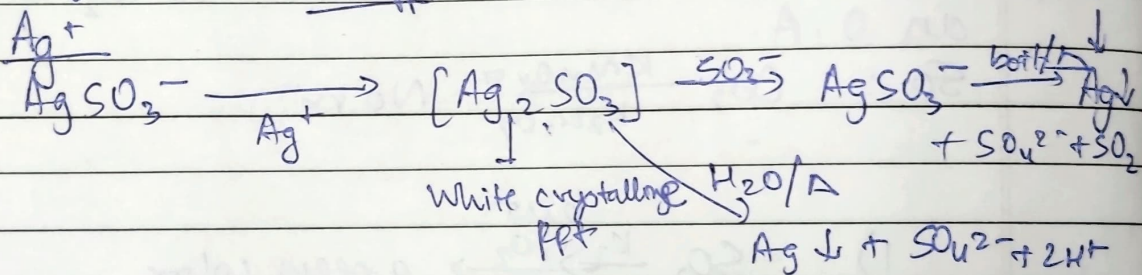 Ag⁺
AgSO₃⁻ ⟶ Ag⁺ [Ag₂SO₃] SO₃⁻ ⟶ AgSO₃⁻ boil/Δ ⟶ Ag↓
+ SO₄²⁻ + SO₂
White crystalline H₂O/Δ
ppt
Ag ↓ + SO₄²⁻ + 2H⁺